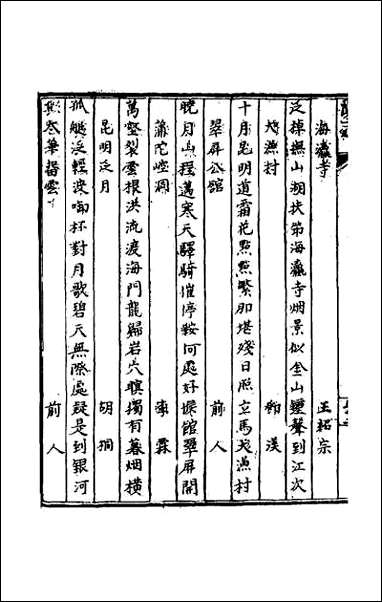 海瀛寺 王拓宗
泛棹無山湖扶笻海瀛寺烟景似金山鐘聲到江次
漁村 柳漢
十月昆明道霜花點點繁即堪殘日照立馬漁村
翠屏公館 前人
曉月山程遇寒天驛騎催停鞍何處好堠館翠屏開
蒲陀崆 李霖
萬壑裂雲根洪流渡海門龍歸岩穴瞑獨有暮烟橫
昆明泛月 胡
孤艇泛輕波啣杯對月歌碧天無際處疑是到銀河
前人